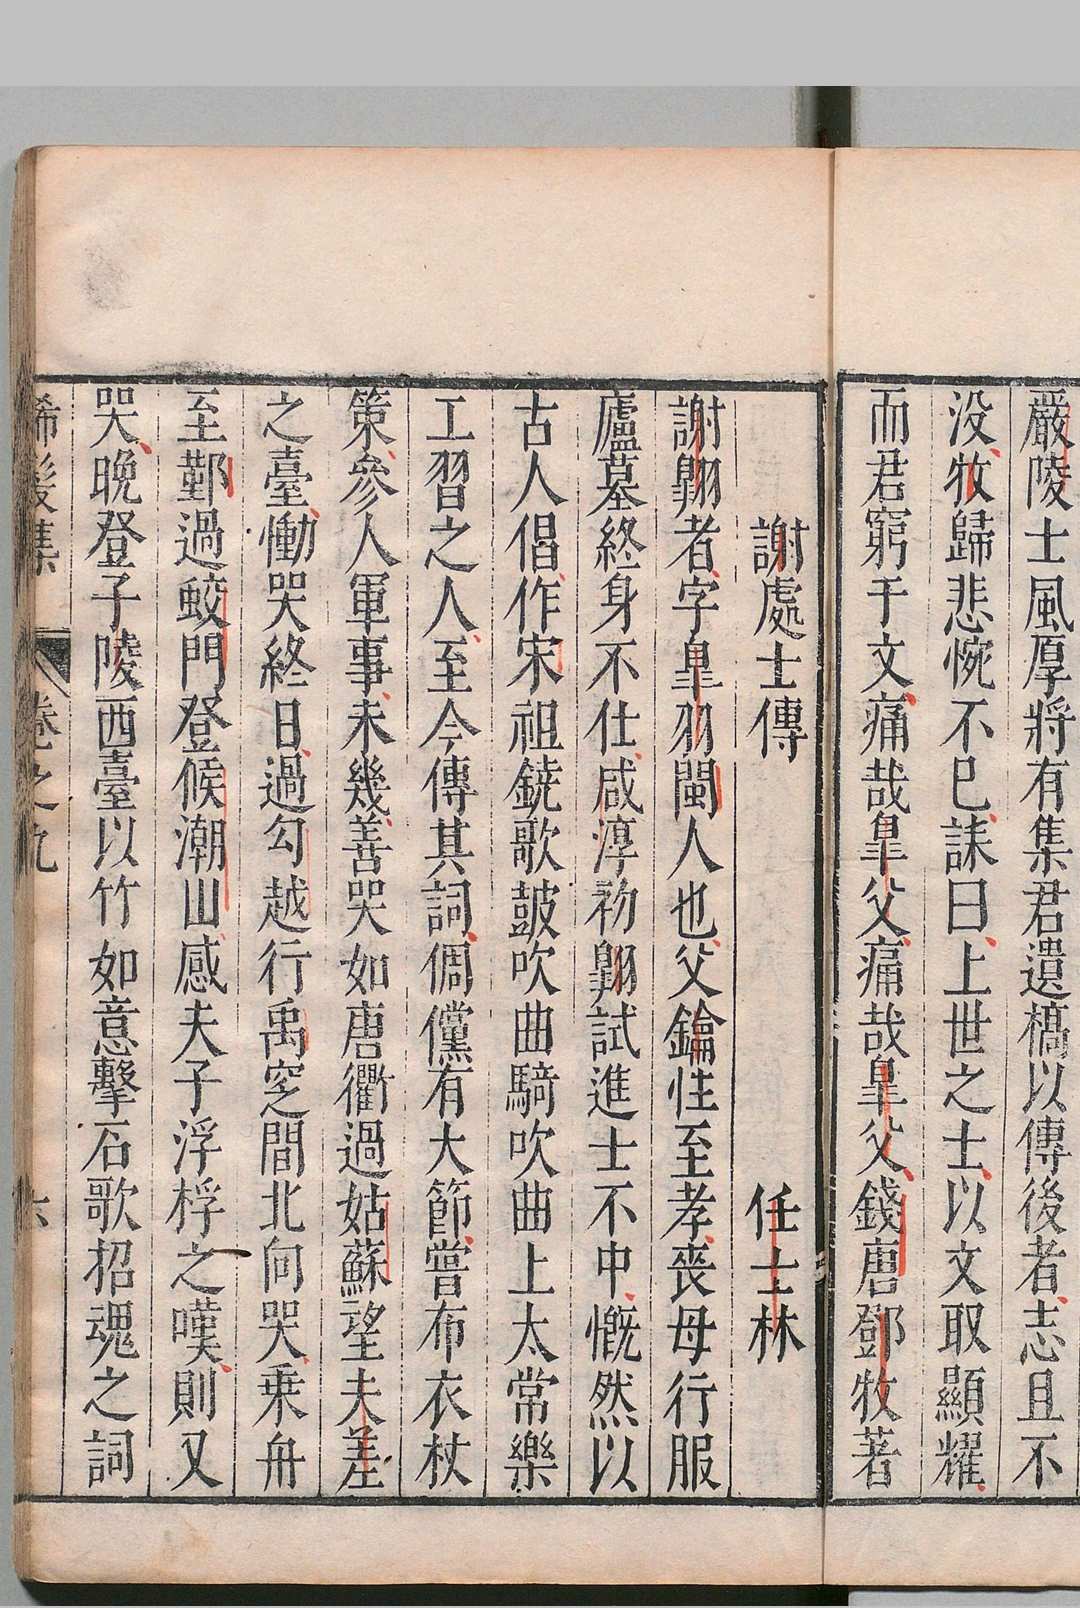 嚴陵士風厚將有集君遺槗以傳後者志且不
没牧歸悲惋不已誄曰上世之士以文取顯耀
而君窮于文痛哉臯父痛哉臯父錢唐鄧牧著
謝處士傳 任士林
謝翺者字臯羽閩人也父鑰性至孝喪母行服
廬墓終身不仕咸淳初翺試進士不中慨然以
古人倡作宋祖鐃歌鼓吹曲騎吹曲上太常樂
工習之人至今傳其詞倜儻有大節嘗布衣杖
策參人軍事未幾善哭如唐衢過姑蘇望夫差
之臺慟哭終日過勾越行禹窆間北向哭乘舟
至鄞過蛟門登候潮山感夫子浮桴之嘆則又
哭晚登子陵西臺以竹如意擊石歌招魂之詞
晞髮集 卷之九 六